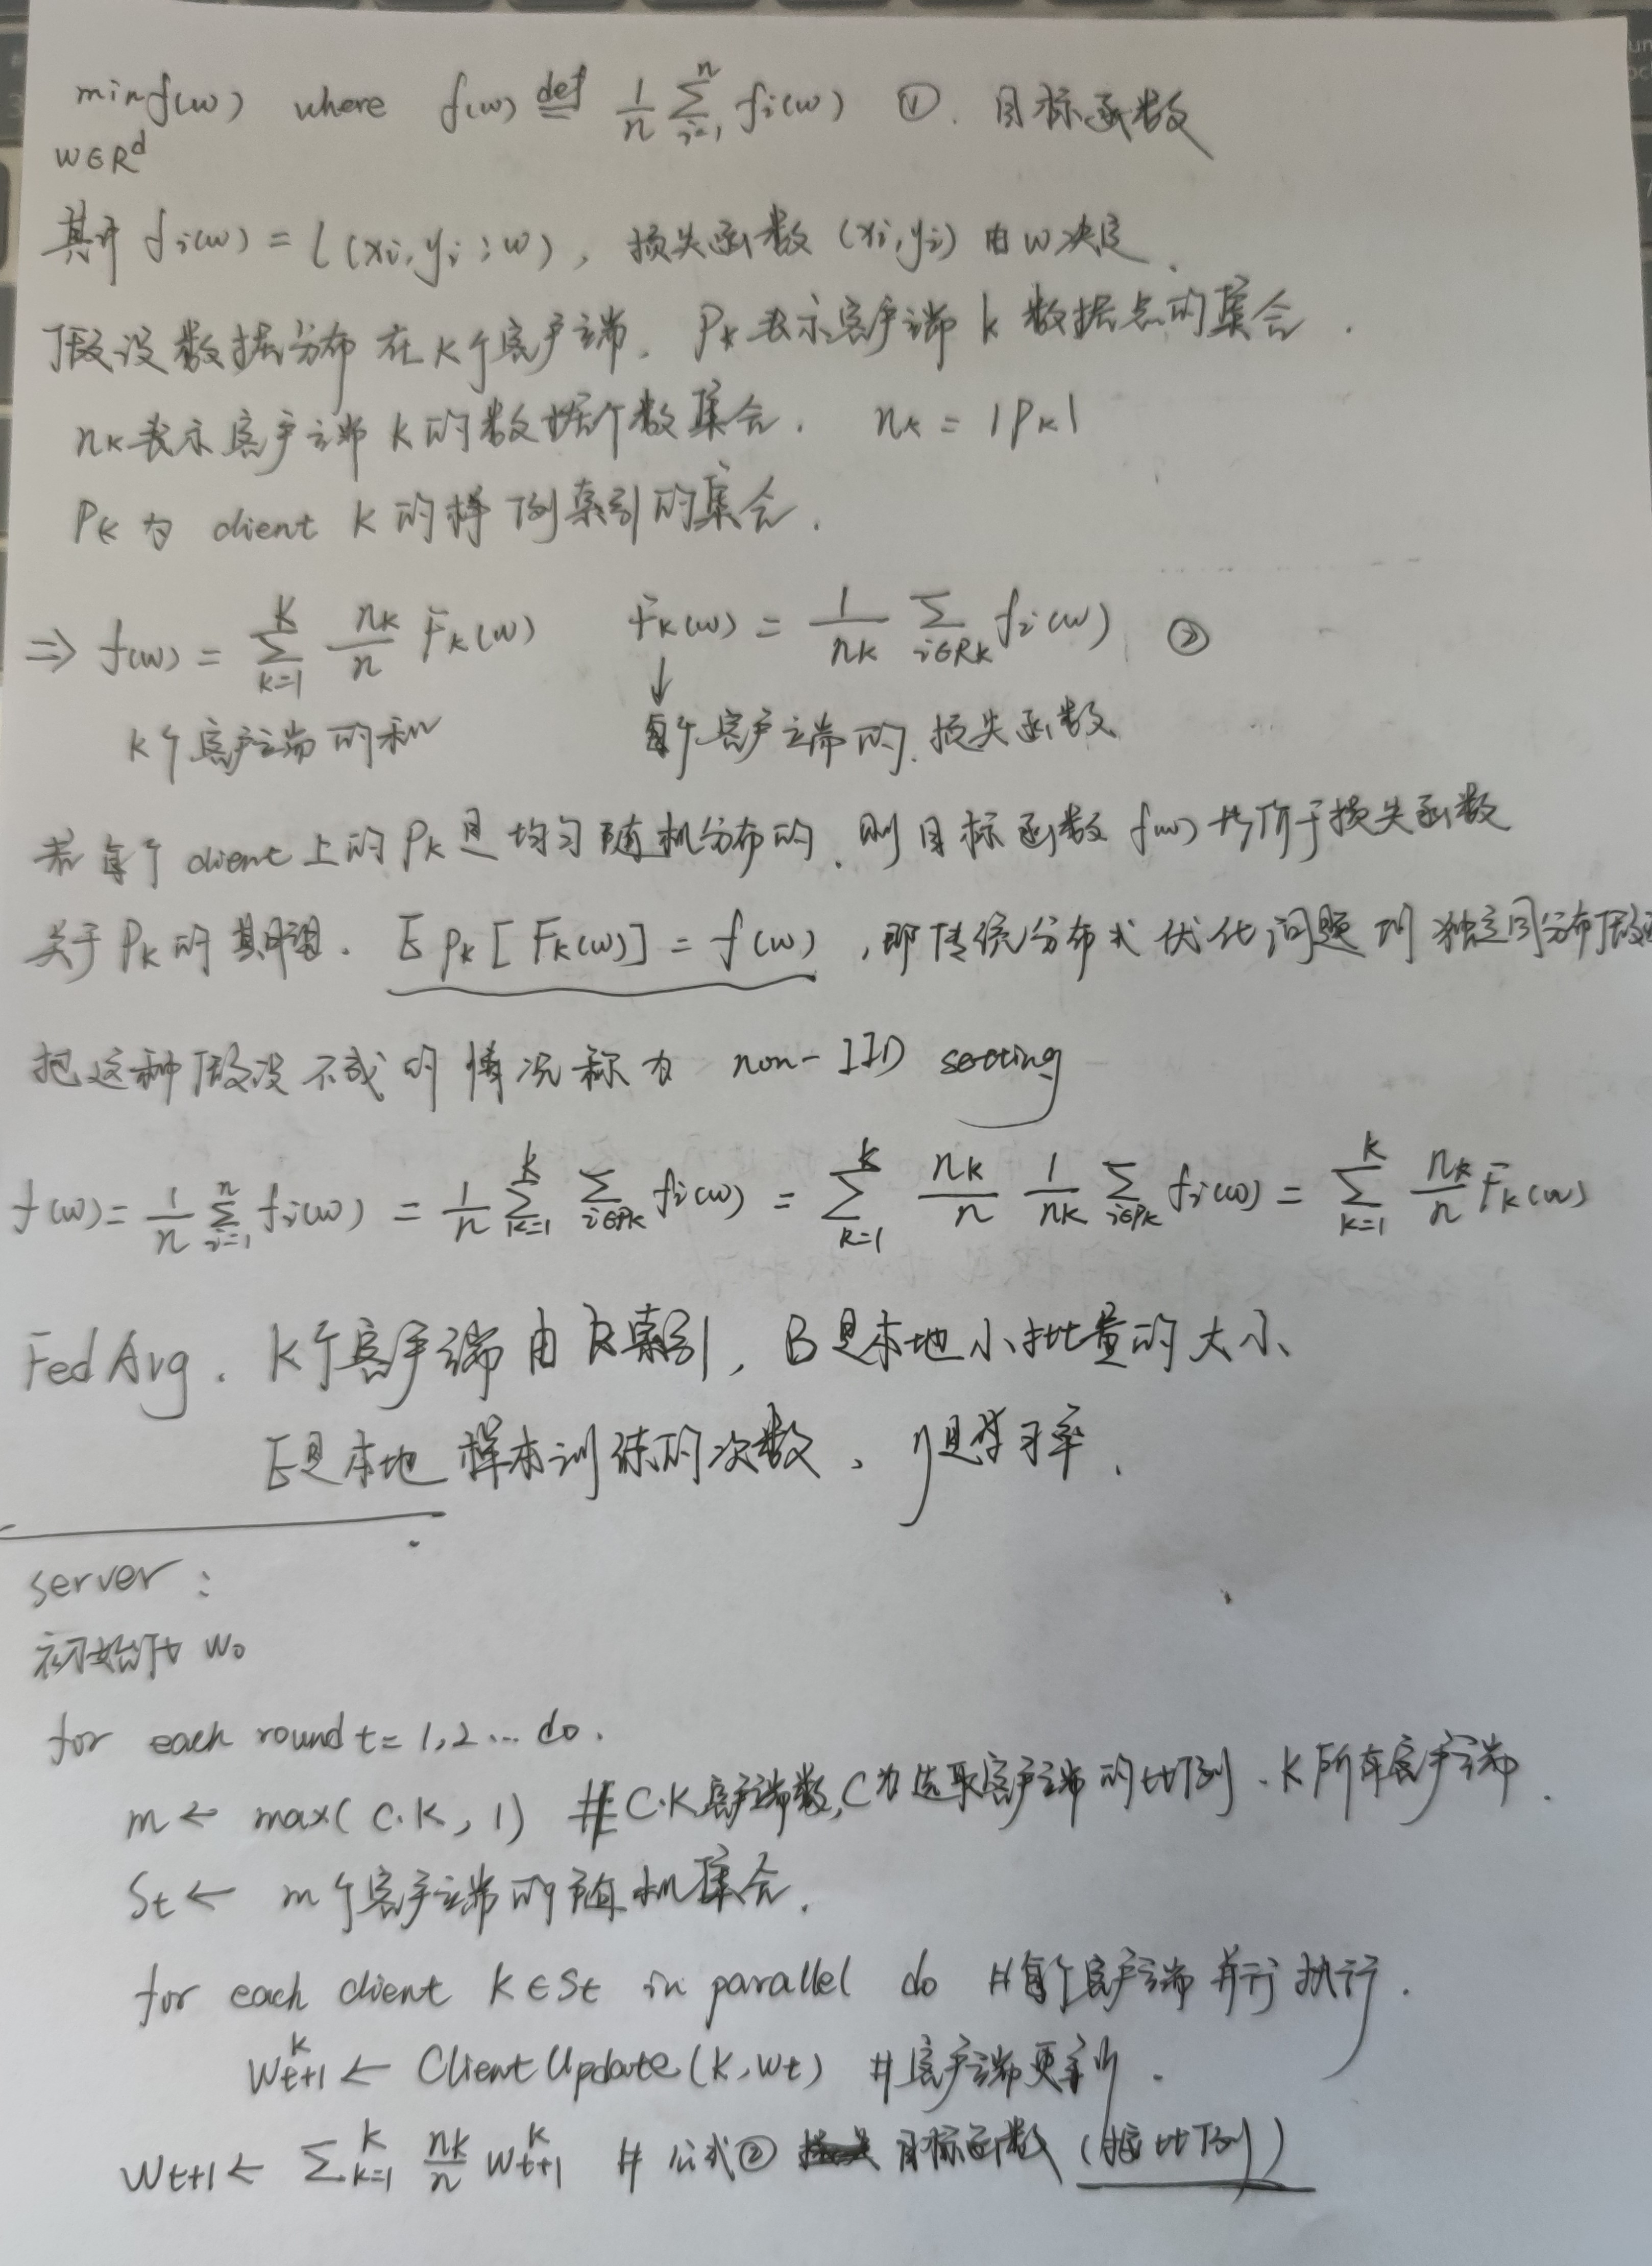 min f(w) where f(w) def= 1/n Σ_{i=1}^{n} f_i(w) ①. 目标函数
w∈R^d
其中 f_i(w) = l(x_i, y_i; w), 损失函数 (x_i, y_i) 由w决定.
假设数据分布在K个客户端. P_k表示客户端k数据点的集合.
n_k表示客户端k的数据个数集合. n_k = |P_k|
P_k 为 client k 的样例索引的集合.
⇒ f(w) = Σ_{k=1}^{K} n_k/n F_k(w) F_k(w) = 1/n_k Σ_{i∈P_k} f_i(w) ②
↓
K个客户端的和 每个客户端的损失函数
若每个client上的P_k是均匀随机分布的, 则目标函数f(w)等价于损失函数
关于P_k的期望. E_{P_k}[F_k(w)] = f(w), 即传统分布式优化问题的独立同分布假设
把这种假设不成的情况称为 non-IID setting
f(w) = 1/n Σ_{i=1}^{n} f_i(w) = 1/n Σ_{k=1}^{K} Σ_{i∈P_k} f_i(w) = Σ_{k=1}^{K} n_k/n 1/n_k Σ_{i∈P_k} f_i(w) = Σ_{k=1}^{K} n_k/n F_k(w)
FedAvg. K个客户端由k索引, B是本地小批量的大小
E是本地样本训练的次数, η是学习率.
server:
初始化 w_0
for each round t = 1,2... do.
m ← max(C·K, 1) # C·K客户端数, C为选取客户端的比例. K所有客户端.
S_t ← m个客户端的随机集合.
for each client k∈S_t in parallel do #每个客户端并行执行.
w_{t+1}^k ← ClientUpdate(k, w_t) #客户端更新.
w_{t+1} ← Σ_{k=1}^{K} n_k/n w_{t+1}^k # 公式② 目标函数 (按比例)